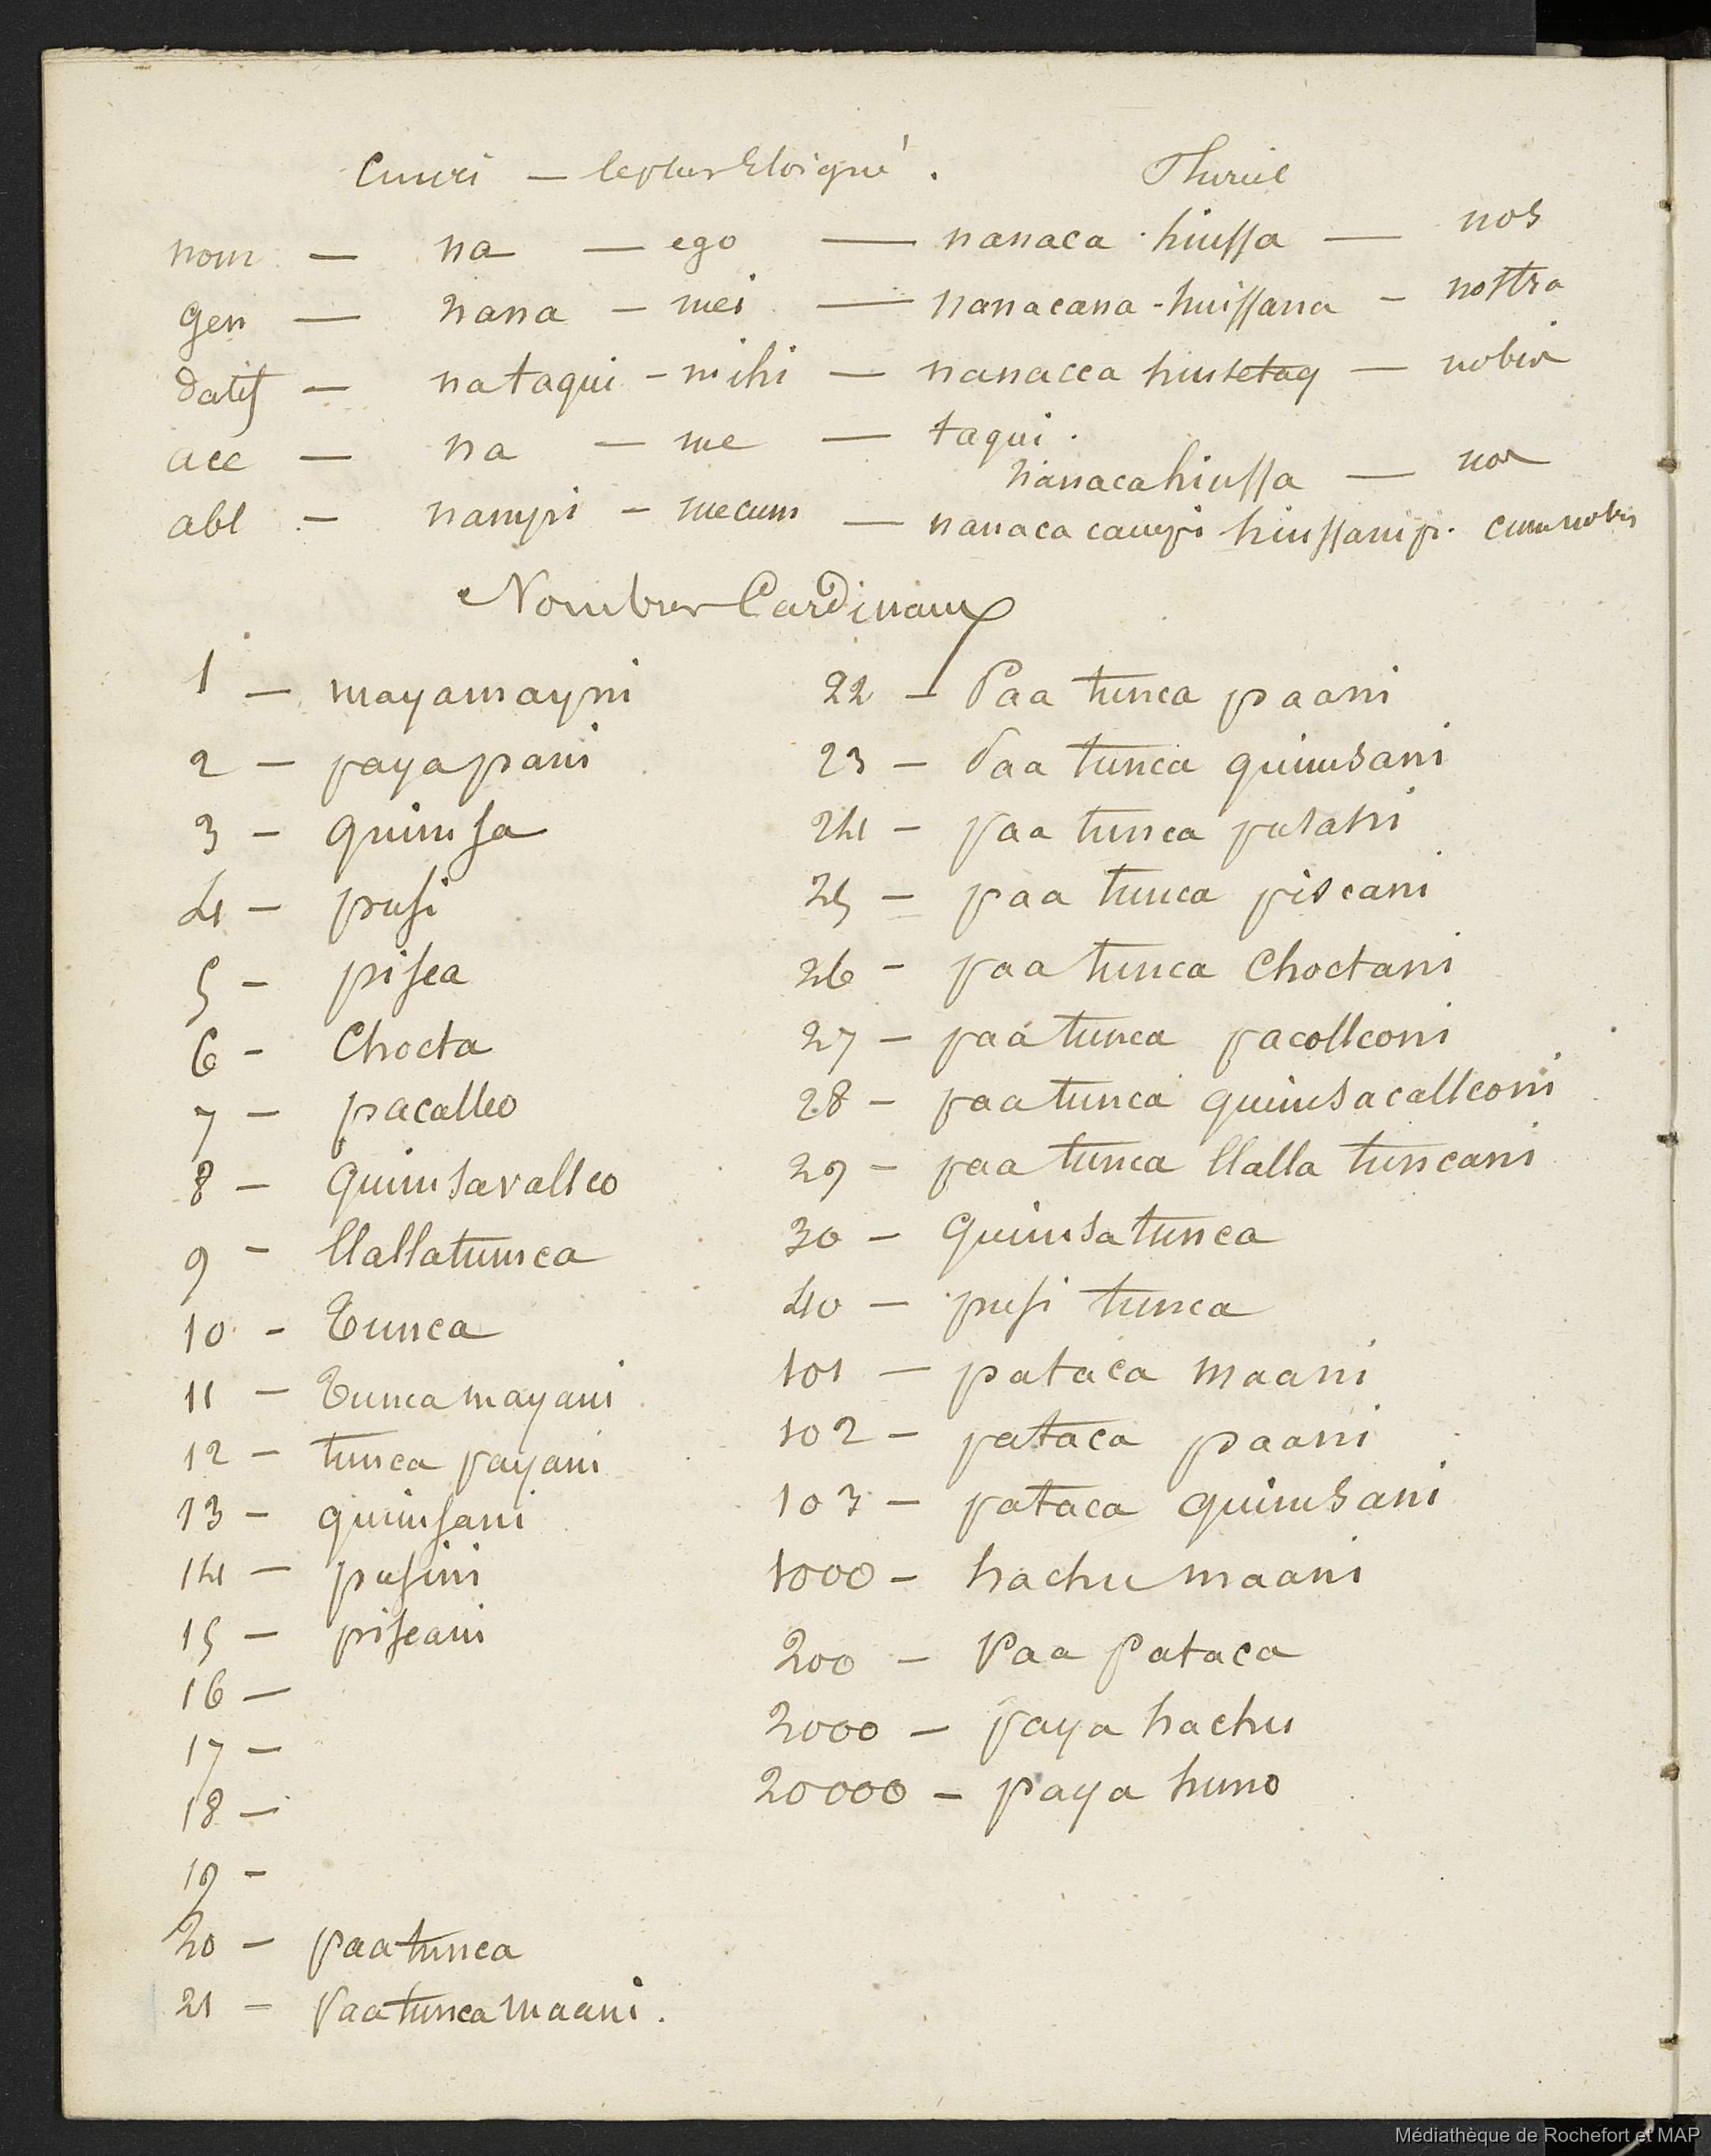 Cuuri — le plus Eloigné. Pluriel
nom — na — ego — nanaca hiussa — nos
gen — nana — mei — nanacana - huissana — nostra
datif — nataqui — mihi — nanacca hiusetaq — nobis
acc — na — me — taqui.
nanacahiussa — nos
abl — nampi — mecum — nanaca campi hiussampi. cum nobis
Nombres Cardinaux
1 — mayamayni
2 — payapani
3 — quimsa
4 — pusi
5 — pisca
6 — Chocta
7 — pacallco
8 — quimsavallco
9 — llallatunca
10 — Tunca
11 — Tunca mayani
12 — tunca payani
13 — quimsani
14 — pusini
15 — piscani
16 —
17 —
18 —
19 —
20 — paatunca
21 — Paatunca maani.
22 — Paa tunca paani
23 — Paa tunca quimsani
24 — paa tunca pusani
25 — paa tunca piscani
26 — paa tunca Choctani
27 — paa tunca pacollconi
28 — paa tunca quimsacallconi
29 — paa tunca llalla tuncani
30 — Quimsa tunca
40 — pusi tunca
101 — pataca maani
102 — pataca paani
103 — pataca quimsani
1000 — hachu maani
200 — Paa Pataca
2000 — paya hachu
20000 — paya huno
Médiathèque de Rochefort et MAP